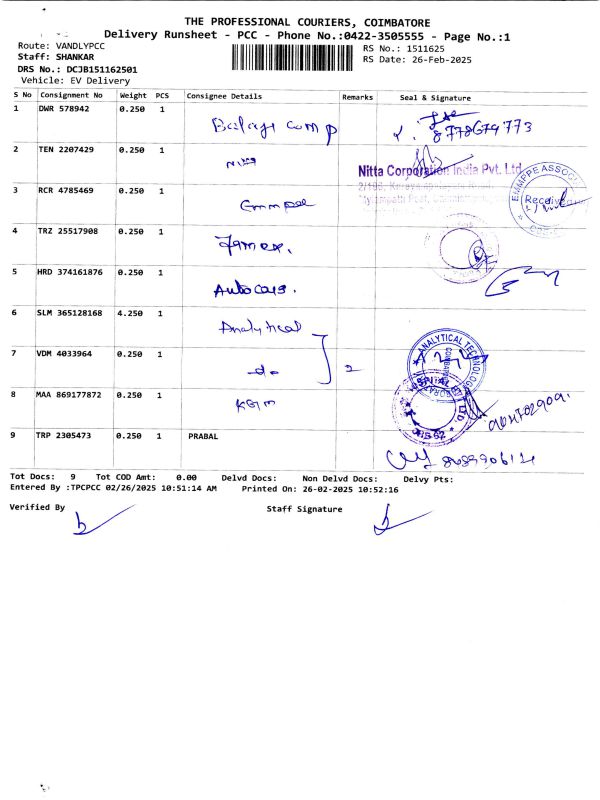 THE PROFESSIONAL COURIERS, COIMBATORE
Delivery Runsheet - PCC - Phone No.:0422-3505555 - Page No.:1
Route: VANDLYPCC
RS No.: 1511625
Staff: SHANKAR
RS Date: 26-Feb-2025
DRS No.: DCJB151162501
Vehicle: EV Delivery
S No Consignment No Weight PCS Consignee Details Remarks Seal & Signature
1 DWR 578942 0.250 1 Balaji comp 8778679773
2 TEN 2207429 0.250 1
Nitta Corporation India Pvt. Ltd
3 RCR 4785469 0.250 1 Emmpee
EMMPPE ASSOC
Received
4 TRZ 25517908 0.250 1
5 HRD 374161876 0.250 1 Autocars.
6 SLM 365128168 4.250 1 Analytical
7 VDM 4033964 0.250 1 -do- 2
ANALYTICAL TECHNOLOG
8 MAA 869177872 0.250 1 KGM
HOSPITAL
LTD.
9 TRP 2305473 0.250 1 PRABAL
Tot Docs: 9 Tot COD Amt: 0.00 Delvd Docs: Non Delvd Docs: Delvy Pts:
Entered By :TPCPCC 02/26/2025 10:51:14 AM Printed On: 26-02-2025 10:52:16
Verified By Staff Signature